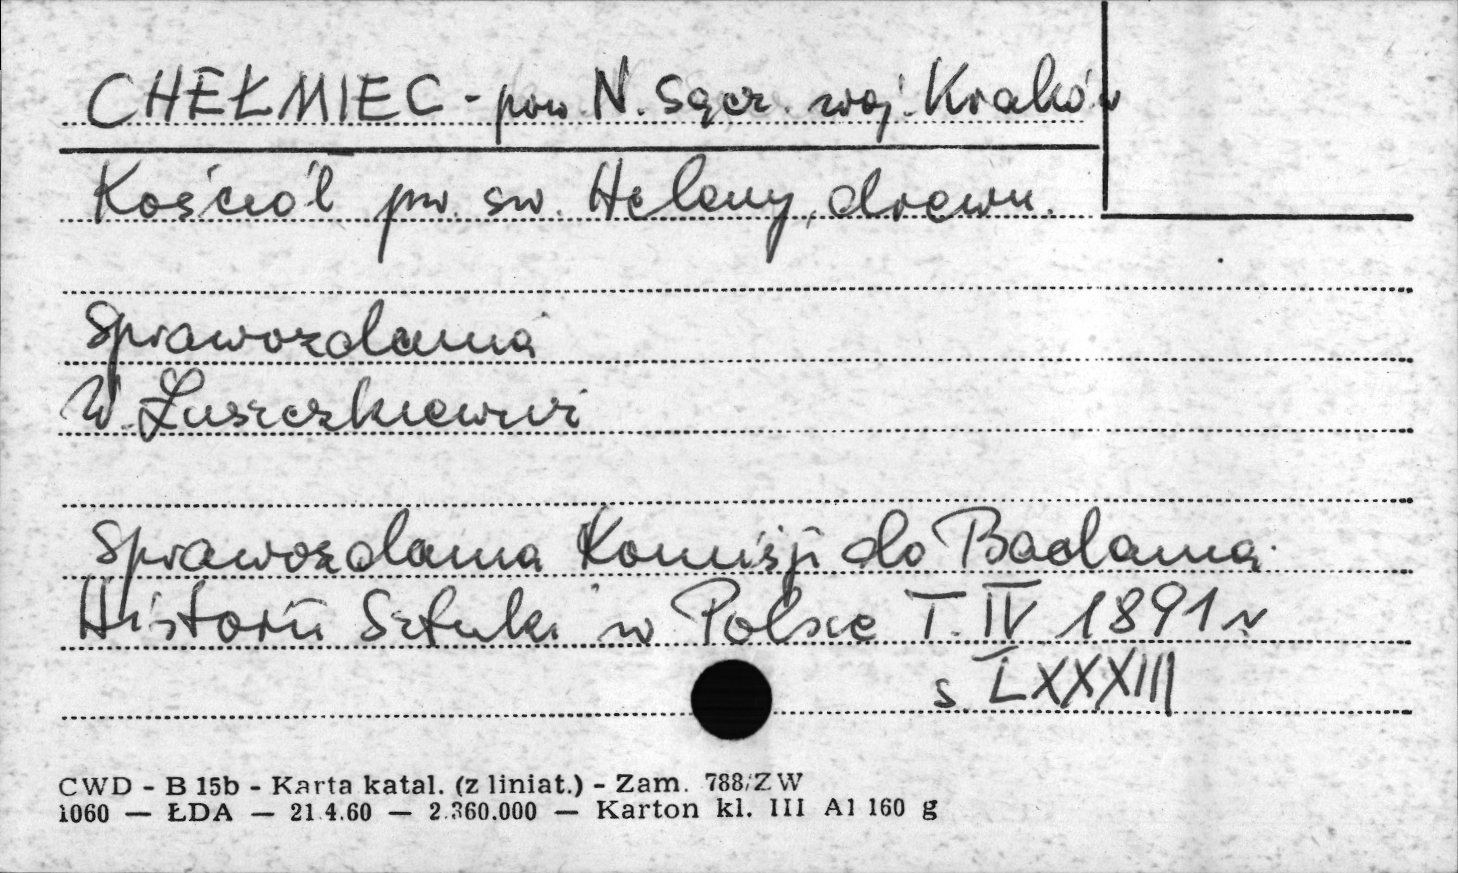 CHEŁMIEC - pow N. Sącz woj. Kraków
Kościół pw. św. Heleny, drewn.
Sprawozdania
W. Łuszczkiewicz
Sprawozdania Komisji do Badania
Historii Sztuki w Polsce T. IV 1891 r
s LXXXIII
CWD - B 15b - Karta katal. (z liniat.) - Zam. 788/ZW
1060 — ŁDA — 21.4.60 — 2.360.000 — Karton kl. III A1 160 g